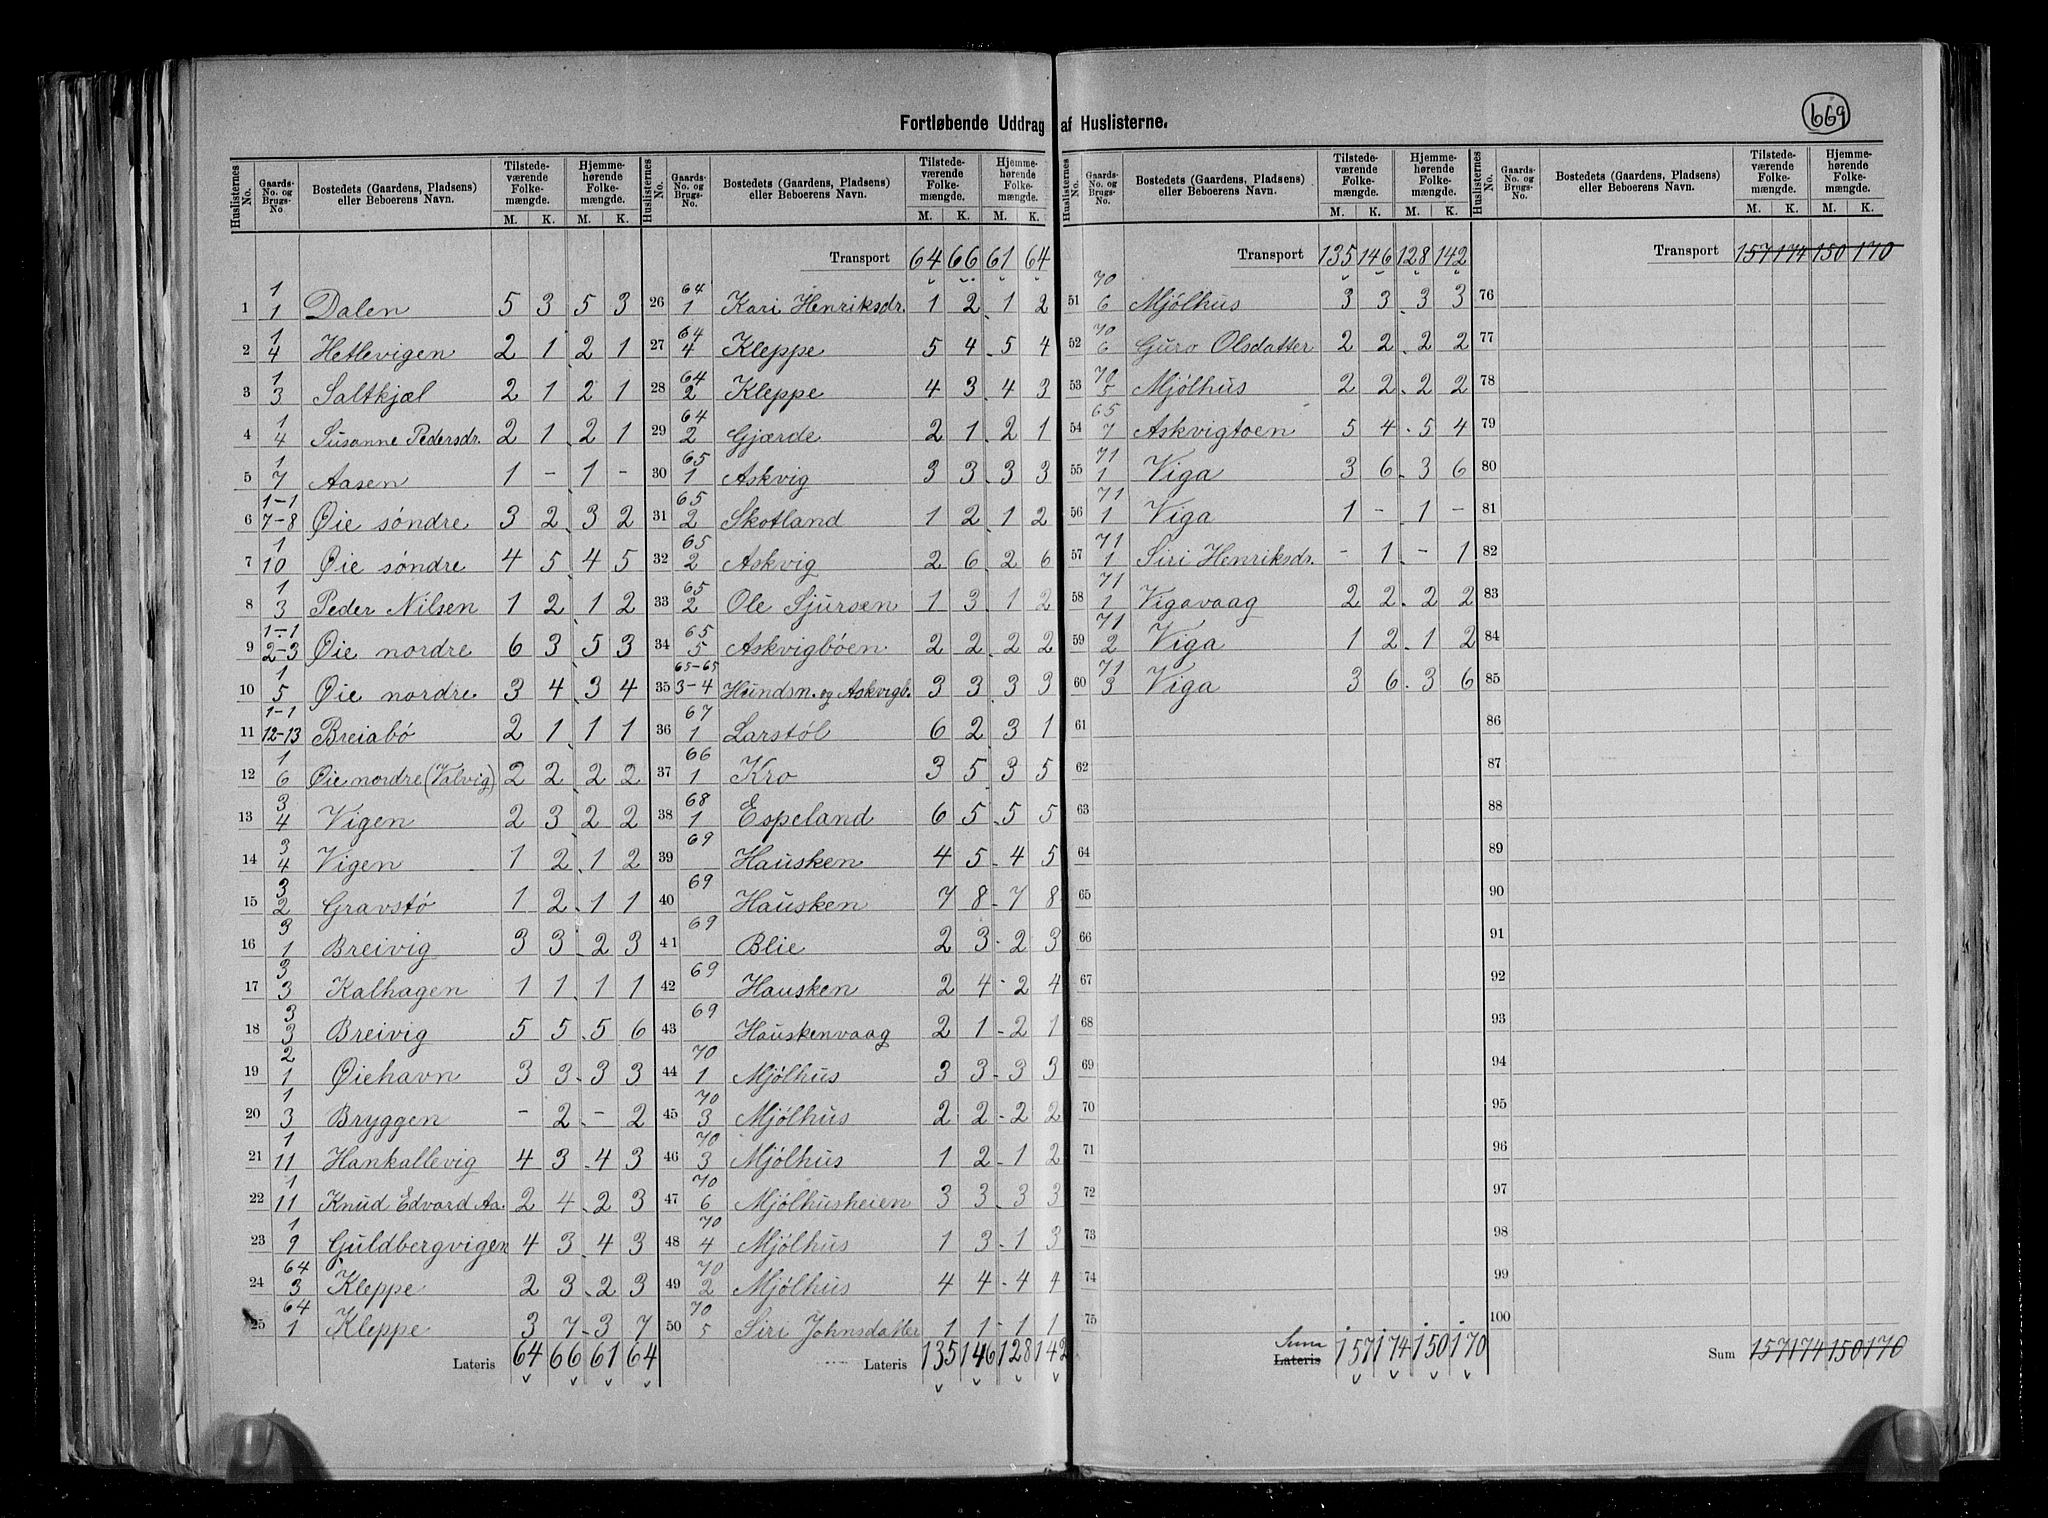 669
Fortløbende Uddrag af Huslisterne.
Huslisternes No. Gaards-No. og Brugs-No. Bostedets (Gaardens, Pladsens) eller Beboerens Navn. Tilstedeværende Folkemængde. M. K. Hjemmehørende Folkemængde. M. K.
1 1/1 Dalen 5 3 5 3
2 1/4 Hetlevigen 2 1 2 1
3 1/3 Saltkjæl 2 1 2 1
4 1/4 Susanne Pedersdr. 2 1 2 1
5 1/7 Aasen 1 - 1 -
6 1-1/7-8 Øie søndre 3 2 3 2
7 1/10 Øie søndre 4 5 4 5
8 1/3 Peder Nilsen 1 2 1 2
9 1-1/2-3 Øie nordre 6 3 5 3
10 1/5 Øie nordre 3 4 3 4
11 1-1/12-13 Breiabø 2 1 1 1
12 1/6 Øie nordre (Valvig) 2 2 2 2
13 3/4 Vigen 2 3 2 2
14 3/4 Vigen 1 2 1 2
15 3/2 Gravstø 1 2 1 1
16 3/1 Breivig 3 3 2 3
17 3/3 Kalhagen 1 1 1 1
18 3/3 Breivig 5 5 5 6
19 2/1 Øiehavn 3 3 3 3
20 1/3 Bryggen - 2 - 2
21 1/11 Hankallevig 4 3 4 3
22 1/11 Knud Edvard Aa. 2 4 2 3
23 1/9 Guldbergvigen 4 3 4 3
24 64/3 Kleppe 2 3 2 3
25 64/1 Kleppe 3 7 3 7
Lateris 64 66 61 64
Huslisternes No. Gaards-No. og Brugs-No. Bostedets (Gaardens, Pladsens) eller Beboerens Navn. Tilstedeværende Folkemængde. M. K. Hjemmehørende Folkemængde. M. K.
Transport 64 66 61 64
26 64/1 Kari Henriksdr. 1 2 1 2
27 64/4 Kleppe 5 4 5 4
28 64/2 Kleppe 4 3 4 3
29 64/2 Gjærde 2 1 2 1
30 65/1 Askvig 3 3 3 3
31 65/2 Skotland 1 2 1 2
32 65/2 Askvig 2 6 2 6
33 65/2 Ole Sjursen 1 3 1 2
34 65/5 Askvigbøen 2 2 2 2
35 65-65/3-4 Hundsn. og Askvigb. 3 3 3 3
36 67/1 Larstøl 6 2 3 1
37 66/1 Kro 3 5 3 5
38 68/1 Espeland 6 5 5 5
39 69 Hausken 4 5 4 5
40 69 Hausken 7 8 7 8
41 69 Blie 2 3 2 3
42 69 Hausken 2 4 2 4
43 69 Hauskenvaag 2 1 2 1
44 70/1 Mjølhus 3 3 3 3
45 70/3 Mjølhus 2 2 2 2
46 70/3 Mjølhus 1 2 1 2
47 70/6 Mjølhusheien 3 3 3 3
48 70/4 Mjølhus 1 3 1 3
49 70/2 Mjølhus 4 4 4 4
50 70/5 Siri Johnsdatter 1 1 1 1
Lateris 135 146 128 142
Huslisternes No. Gaards-No. og Brugs-No. Bostedets (Gaardens, Pladsens) eller Beboerens Navn. Tilstedeværende Folkemængde. M. K. Hjemmehørende Folkemængde. M. K.
Transport 135 146 128 142
51 70/6 Mjølhus 3 3 3 3
52 70/6 Guro Olsdatter 2 2 2 2
53 70/5 Mjølhus 2 2 2 2
54 65/7 Askvigtoen 5 4 5 4
55 71/1 Viga 3 6 3 6
56 71/1 Viga 1 - 1 -
57 71/1 Siri Henriksdr. - 1 - 1
58 71/1 Vigavaag 2 2 2 2
59 71/2 Viga 1 2 1 2
60 71/3 Viga 3 6 3 6
61
62
63
64
65
66
67
68
69
70
71
72
73
74
75
Suma Lateris 157 174 150 170
Huslisternes No. Gaards-No. og Brugs-No. Bostedets (Gaardens, Pladsens) eller Beboerens Navn. Tilstedeværende Folkemængde. M. K. Hjemmehørende Folkemængde. M. K.
Transport 157 174 150 170
76
77
78
79
80
81
82
83
84
85
86
87
88
89
90
91
92
93
94
95
96
97
98
99
100
Sum 157 174 150 170